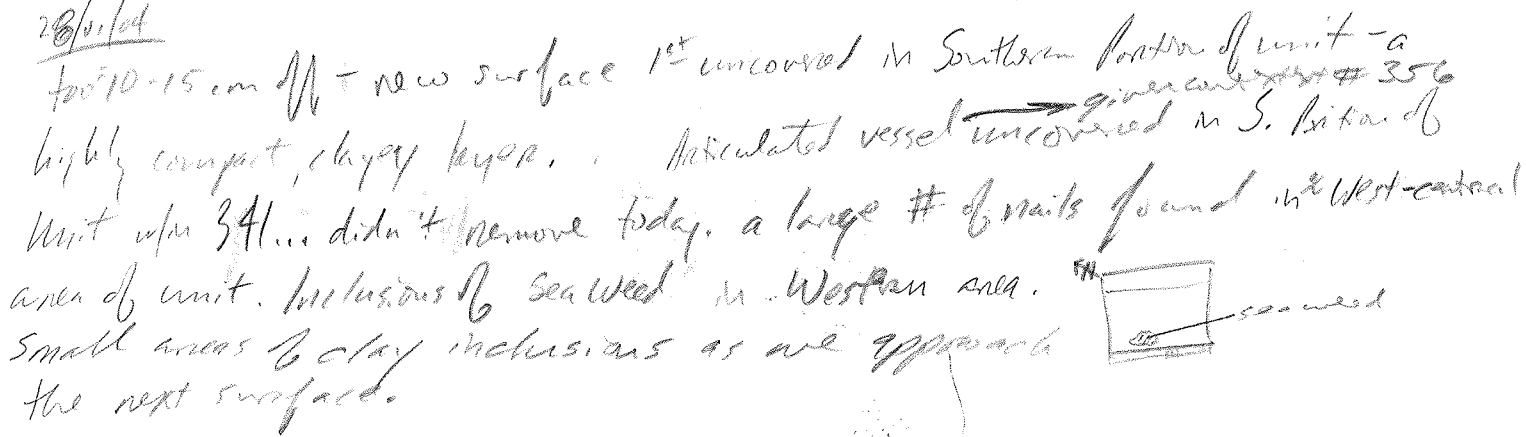 28/01/04
10-15 cm off - new surface 1st uncovered in Southern Portion of unit - a
given context # 356
highly compact, clayey layer. Articulated vessel uncovered in S. Portion of
Unit w/in 341... didn't remove today. a large # of nails found in West-central
area of unit. Inclusions of seaweed in Western area.
seaweed
Small areas of clay inclusions as we approach
the next surface.